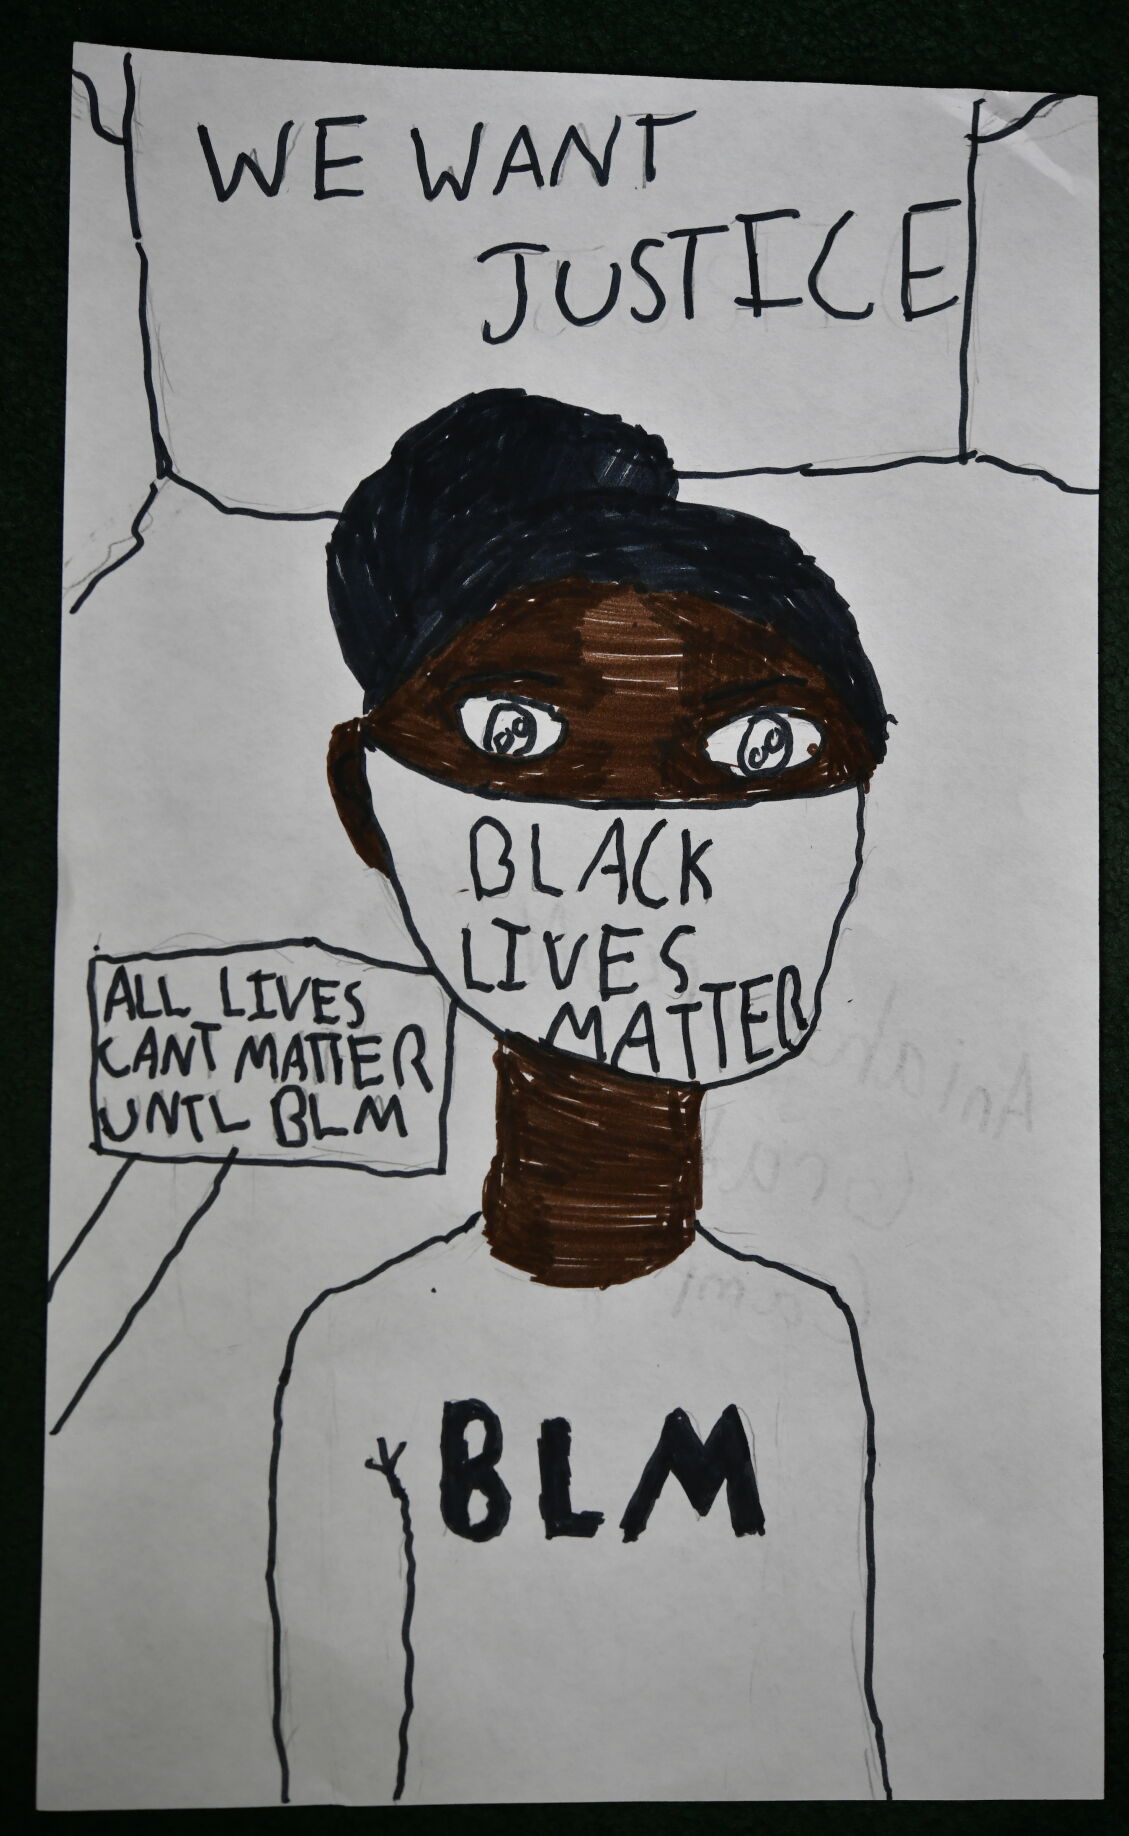 WE WANT
JUSTICE
BLACK
LIVES
MATTER
ALL LIVES
CANT MATTER
UNTL BLM
BLM